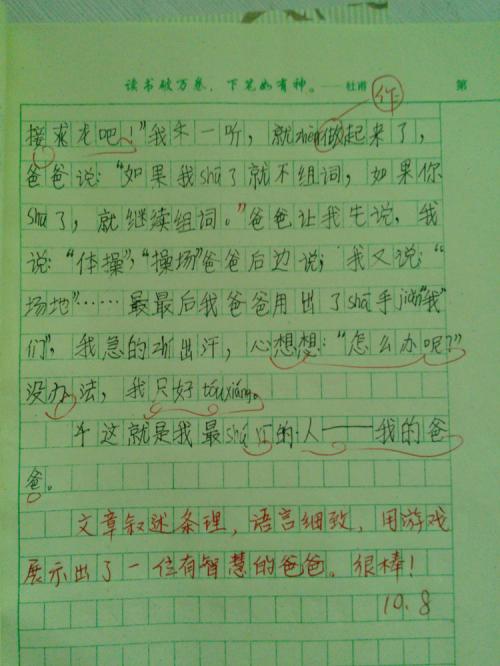 读书破万卷，下笔如有神。——杜甫 第
作
接求龙吧！”我一听，就zhèn做起来了，
爸爸说：“如果我shū了就不组词，如果你
shū了，就继续组词。”爸爸让我先说，我
说：“体操”，“操场”爸爸后边说；我又说：“
场地”……最最后我爸爸用出了shā手jiǎn“我
们”，我急的出汗，心想想：“怎么办呢？”
没办法，我只好tóuxiáng。
这就是我最的人——我的爸
爸。
文章叙述条理，语言细致，用游戏
展示出了一位有智慧的爸爸。很棒！
10.8